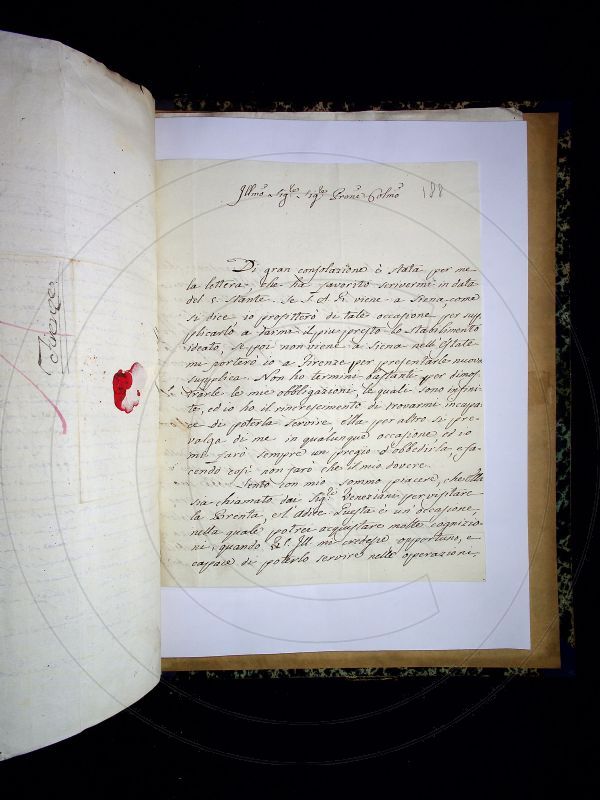 188
Illmo Sigre Sigre Prone Colmo
Di gran consolazione è stata per me
la lettera, che ha favorito scrivermi in data
del 5. stante. Se S. A. R. viene a Siena, come
si dice io profitterò di tale occasione per sup
plicarlo a darmi il più presto lo stabilimento
ideato, se poi non viene a Siena nell'Estate
mi porterò io a Firenze per presentarle nuova
supplica. Non ho termini bastanti per dimos
trarle le mie obbligazioni, le quali sono infini
te, ed io ho il rincrescimento di trovarmi incapa
ce di poterla servire, ella per altro si pre
valga di me in qualunque occasione, ed io
mi farò sempre un pregio d'obbedirla, e fa
cendo così non farò che il mio dovere.
Sento con mio sommo piacere, che Ella
sia chiamato dai Sigri Veneziani per visitare
la Brenta, e l'Adice. Questa è un'occasione,
nella quale potrei acquistare molte cognizio
ni, quando V. S. Ill. mi credesse opportuno, e
capace di poterlo servire nelle operazioni,